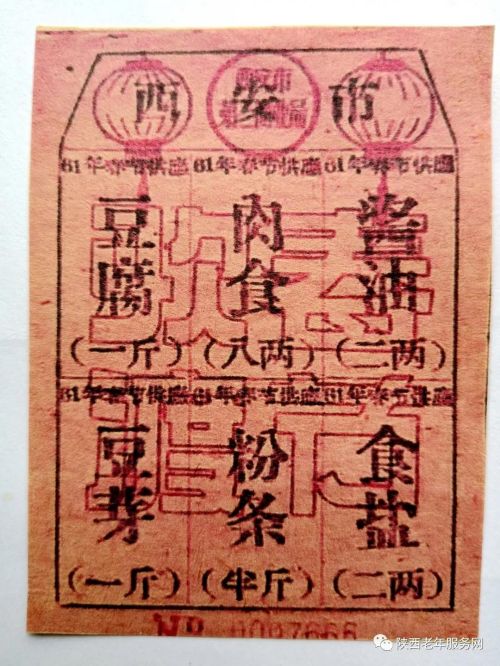 西安市
61年春节供应 61年春节供应 61年春节供应
豆腐 肉食 酱油
(一斤) (八两) (二两)
61年春节供应 61年春节供应 61年春节供应
豆芽 粉条 食盐
(一斤) (半斤) (二两)
No 0097666
陕西老年服务网